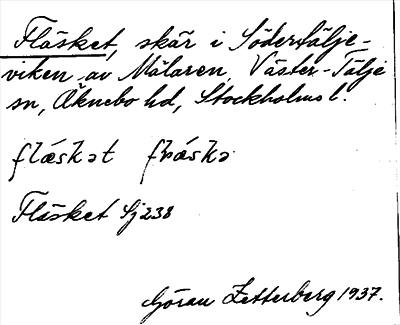 Fläsket, skär i Södertälje-
viken av Mälaren, Väster-Tälje
sn, Öknebo hd, Stockholms l.
flæskət
Fläsket Sj 238
Göran Zetterberg 1937.